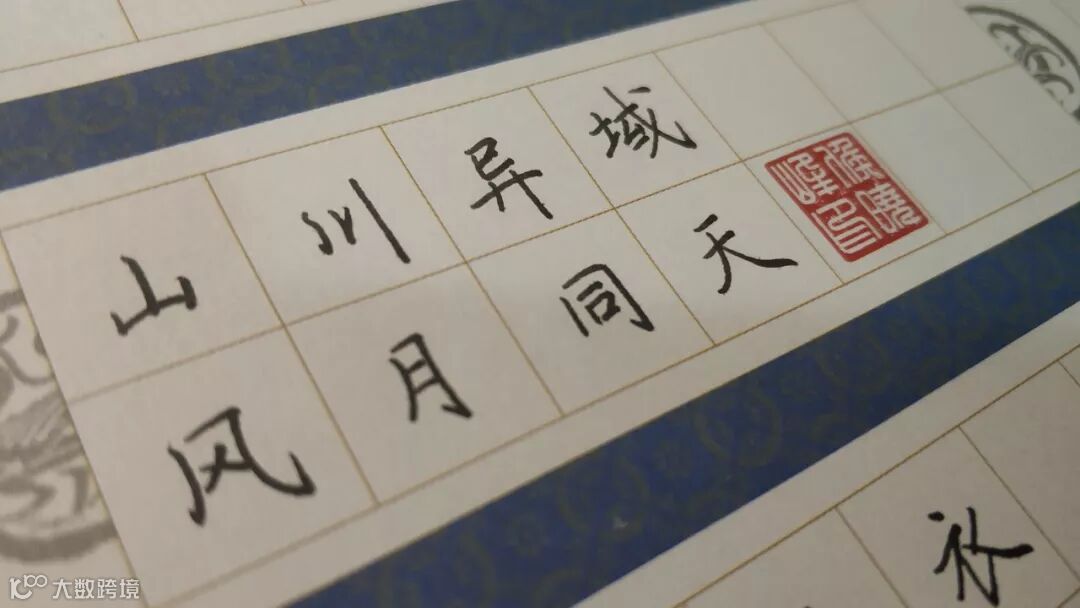 山川异域
风月同天
大数跨境